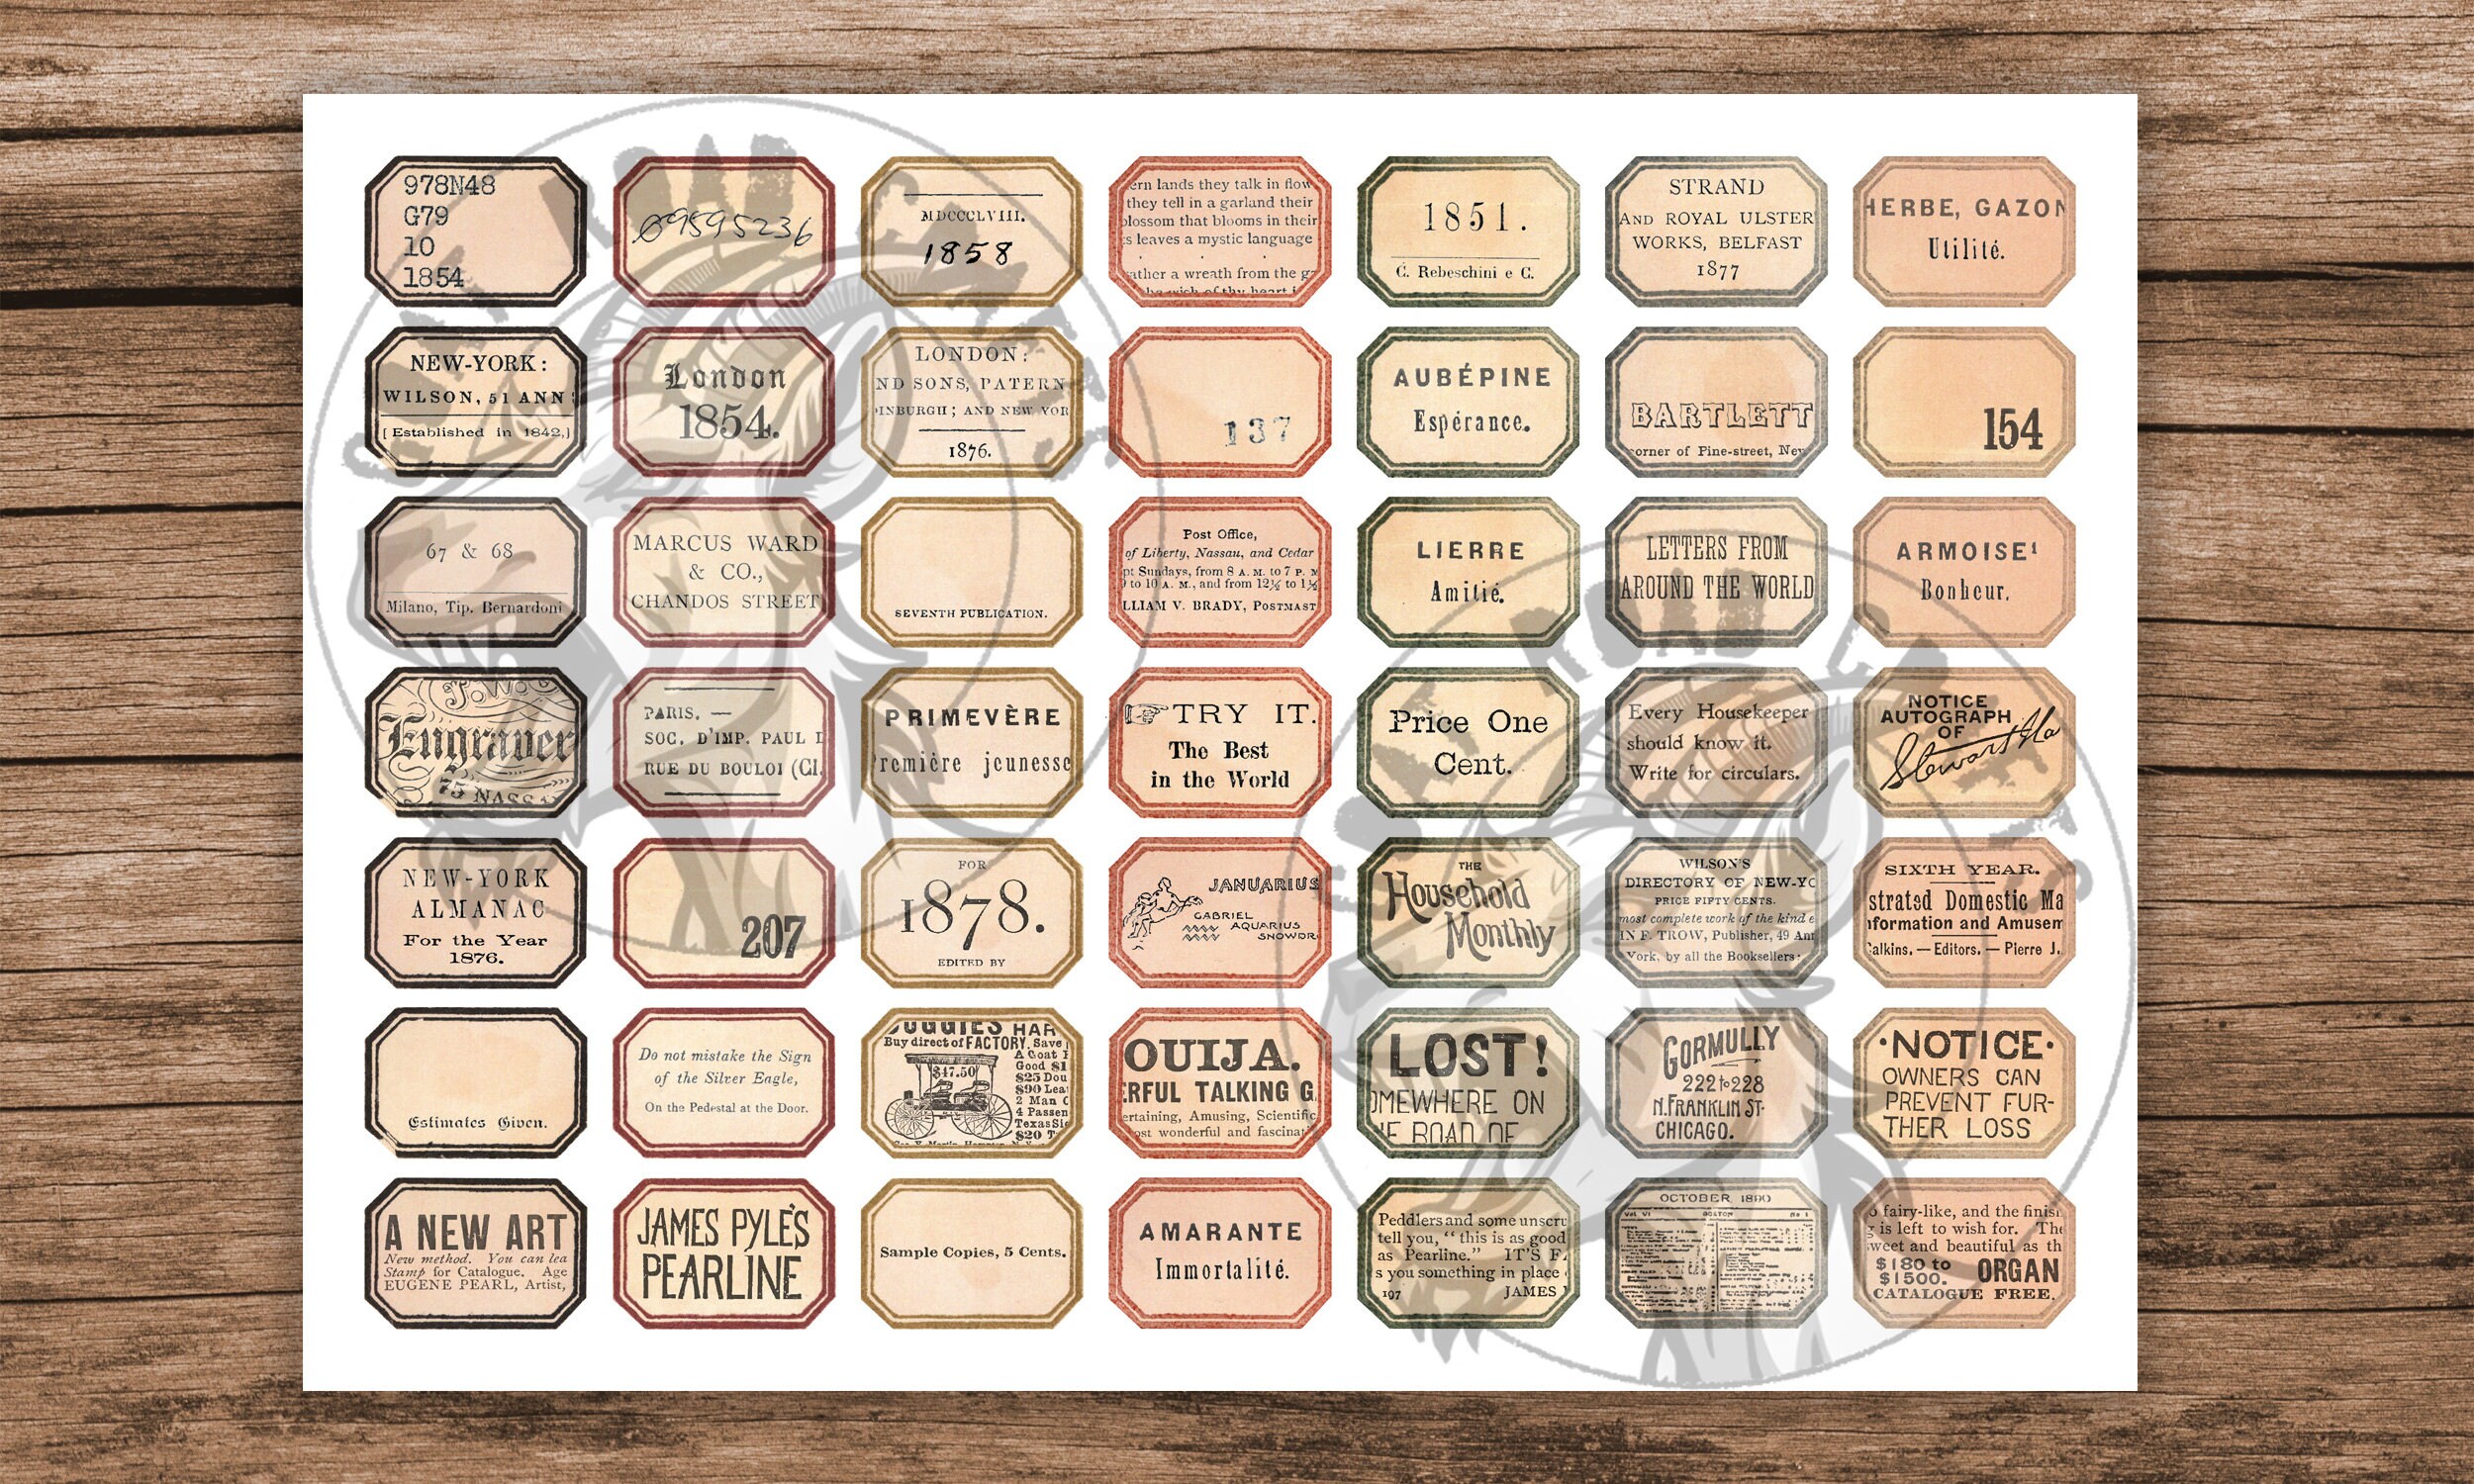 978N48
G79
10
1854
09595236
MDCCCLVIII.
1858
ern lands they talk in flow
they tell in a garland their
blossom that blooms in their
s leaves a mystic language
ather a wreath from the
of thy heart
1851.
C. Rebeschini e C.
STRAND
AND ROYAL ULSTER
WORKS, BELFAST
1877
HERBE, GAZON
Utilité.
NEW-YORK:
WILSON, 51 ANN
[Established in 1842,]
London
1854.
LONDON:
ND SONS, PATERN
INBURGH; AND NEW YOR
1876.
137
AUBÉPINE
Espérance.
BARTLETT
orner of Pine-street, New
154
67 & 68
Milano, Tip. Bernardoni
MARCUS WARD
& CO.,
CHANDOS STREET
SEVENTH PUBLICATION.
Post Office,
of Liberty, Nassau, and Cedar
pt Sundays, from 8 A. M. to 7 P. M
to 10 A. M., and from 12½ to 1½
LLIAM V. BRADY, POSTMAST
LIERRE
Amitié.
LETTERS FROM
AROUND THE WORLD
ARMOISE¹
Bonheur.
Engraver
75 NASSA
PARIS. —
SOC. D'IMP. PAUL
RUE DU BOULOI (Cl.
PRIMEVÈRE
remière jeunesse
TRY IT.
The Best
in the World
Price One
Cent.
Every Housekeeper
should know it.
Write for circulars.
NOTICE
AUTOGRAPH
OF
Stewart
NEW-YORK
ALMANAC
For the Year
1876.
207
FOR
1878.
EDITED BY
JANUARIUS
GABRIEL
AQUARIUS
SNOWDR
THE
Household
Monthly
WILSON'S
DIRECTORY OF NEW-YO
PRICE FIFTY CENTS.
most complete work of the kind e
IN F. TROW, Publisher, 49 Ann
York, by all the Booksellers
SIXTH YEAR.
strated Domestic Ma
nformation and Amusem
alkins. — Editors. — Pierre J.
Estimates Given.
Do not mistake the Sign
of the Silver Eagle,
On the Pedestal at the Door.
BUGGIES HAR
Buy direct of FACTORY. Save
A Coat
Good $1
$47.50
$25 Dou
$90 Lea
2 Man
4 Passen
Texas Si
$20 T
OUIJA.
ERFUL TALKING G
ertaining, Amusing, Scientific
ost wonderful and fascinat
LOST!
OMEWHERE ON
HE ROAD OF
GORMULLY
222 to 228
N. FRANKLIN ST.
CHICAGO.
·NOTICE·
OWNERS CAN
PREVENT FUR-
THER LOSS
A NEW ART
New method. You can lea
Stamp for Catalogue. Age
EUGENE PEARL, Artist,
JAMES PYLE'S
PEARLINE
Sample Copies, 5 Cents.
AMARANTE
Immortalité.
Peddlers and some unscru
tell you, "this is as good
as Pearline." IT'S FA
s you something in place
197 JAMES
OCTOBER 1890
BOSTON
o fairy-like, and the finish
g is left to wish for. The
weet and beautiful as th
$180 to
$1500. ORGAN
CATALOGUE FREE.